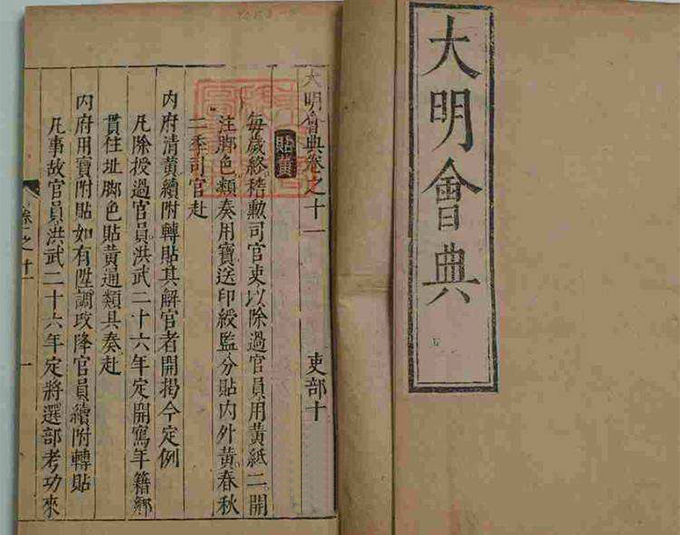 大明會典
大明會典卷之十一 吏部十
貼黃
每歲終稽勳司官吏以除過官員用黃紙二開
注腳色類奏用寶送印綬監分貼內外黃春秋
二季司官赴
內府清黃續附轉貼其解官者開揭今定例
凡除授過官員洪武二十六年定開寫年籍鄉
貫住址腳色貼黃通類具奏赴
內府用寶附貼如有陞調改降官員續附轉貼
凡事故官員洪武二十六年定將選部考功來
卷之十一 一